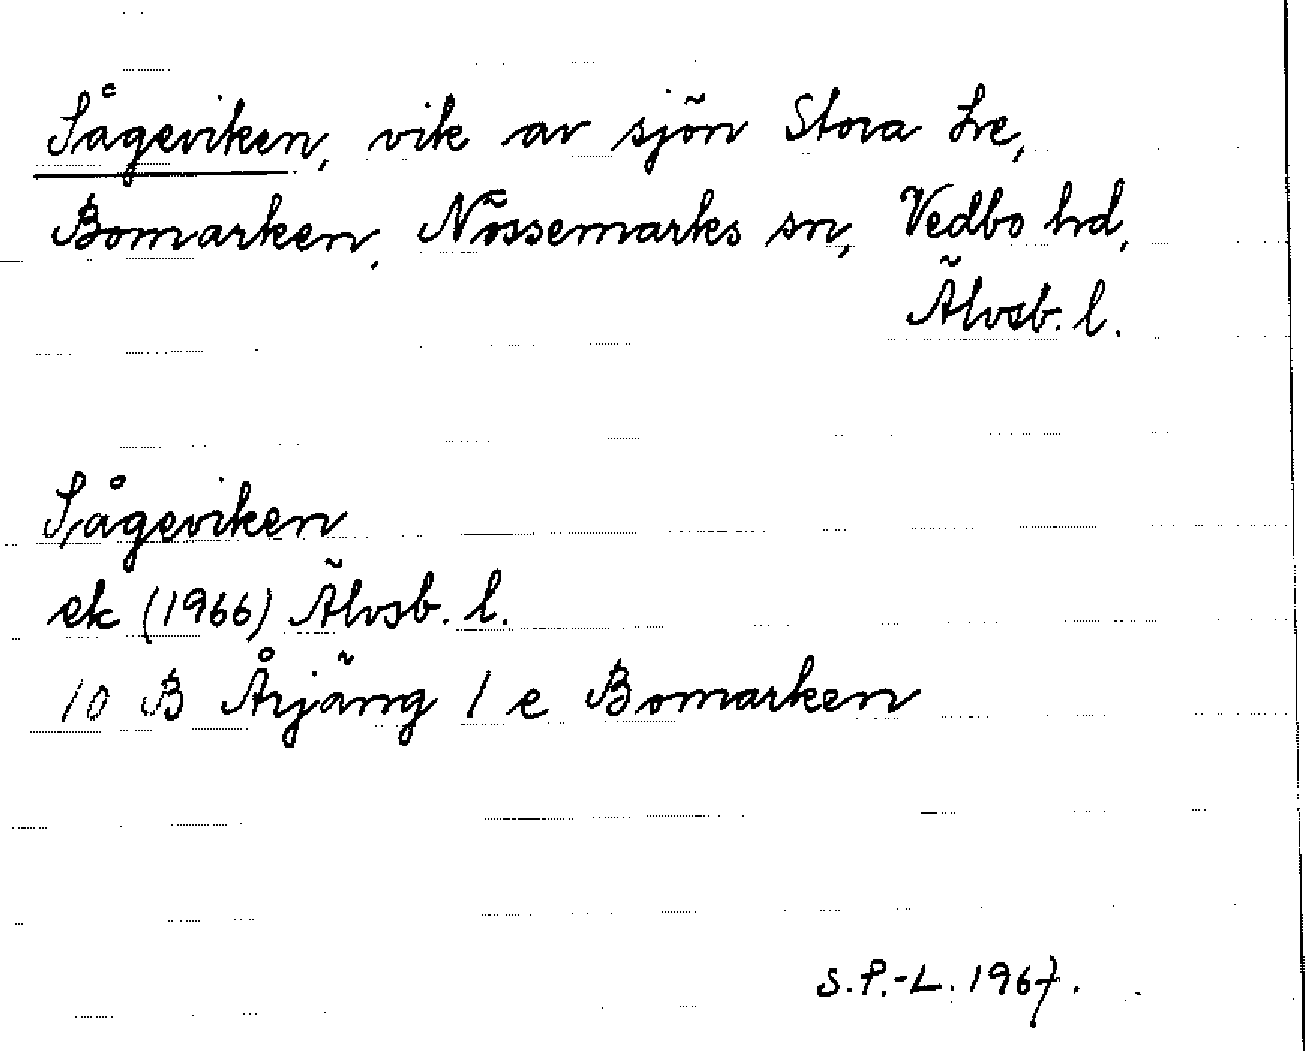 Sågeviken, vik av sjön Stora Le,
Bomarken, Nössemarks sn, Vedbo hd,
Älvsb. l.
Sågeviken
ek (1966) Älvsb. l.
10 B Årjäng 1 e Bomarken
S.P.-L. 1967.